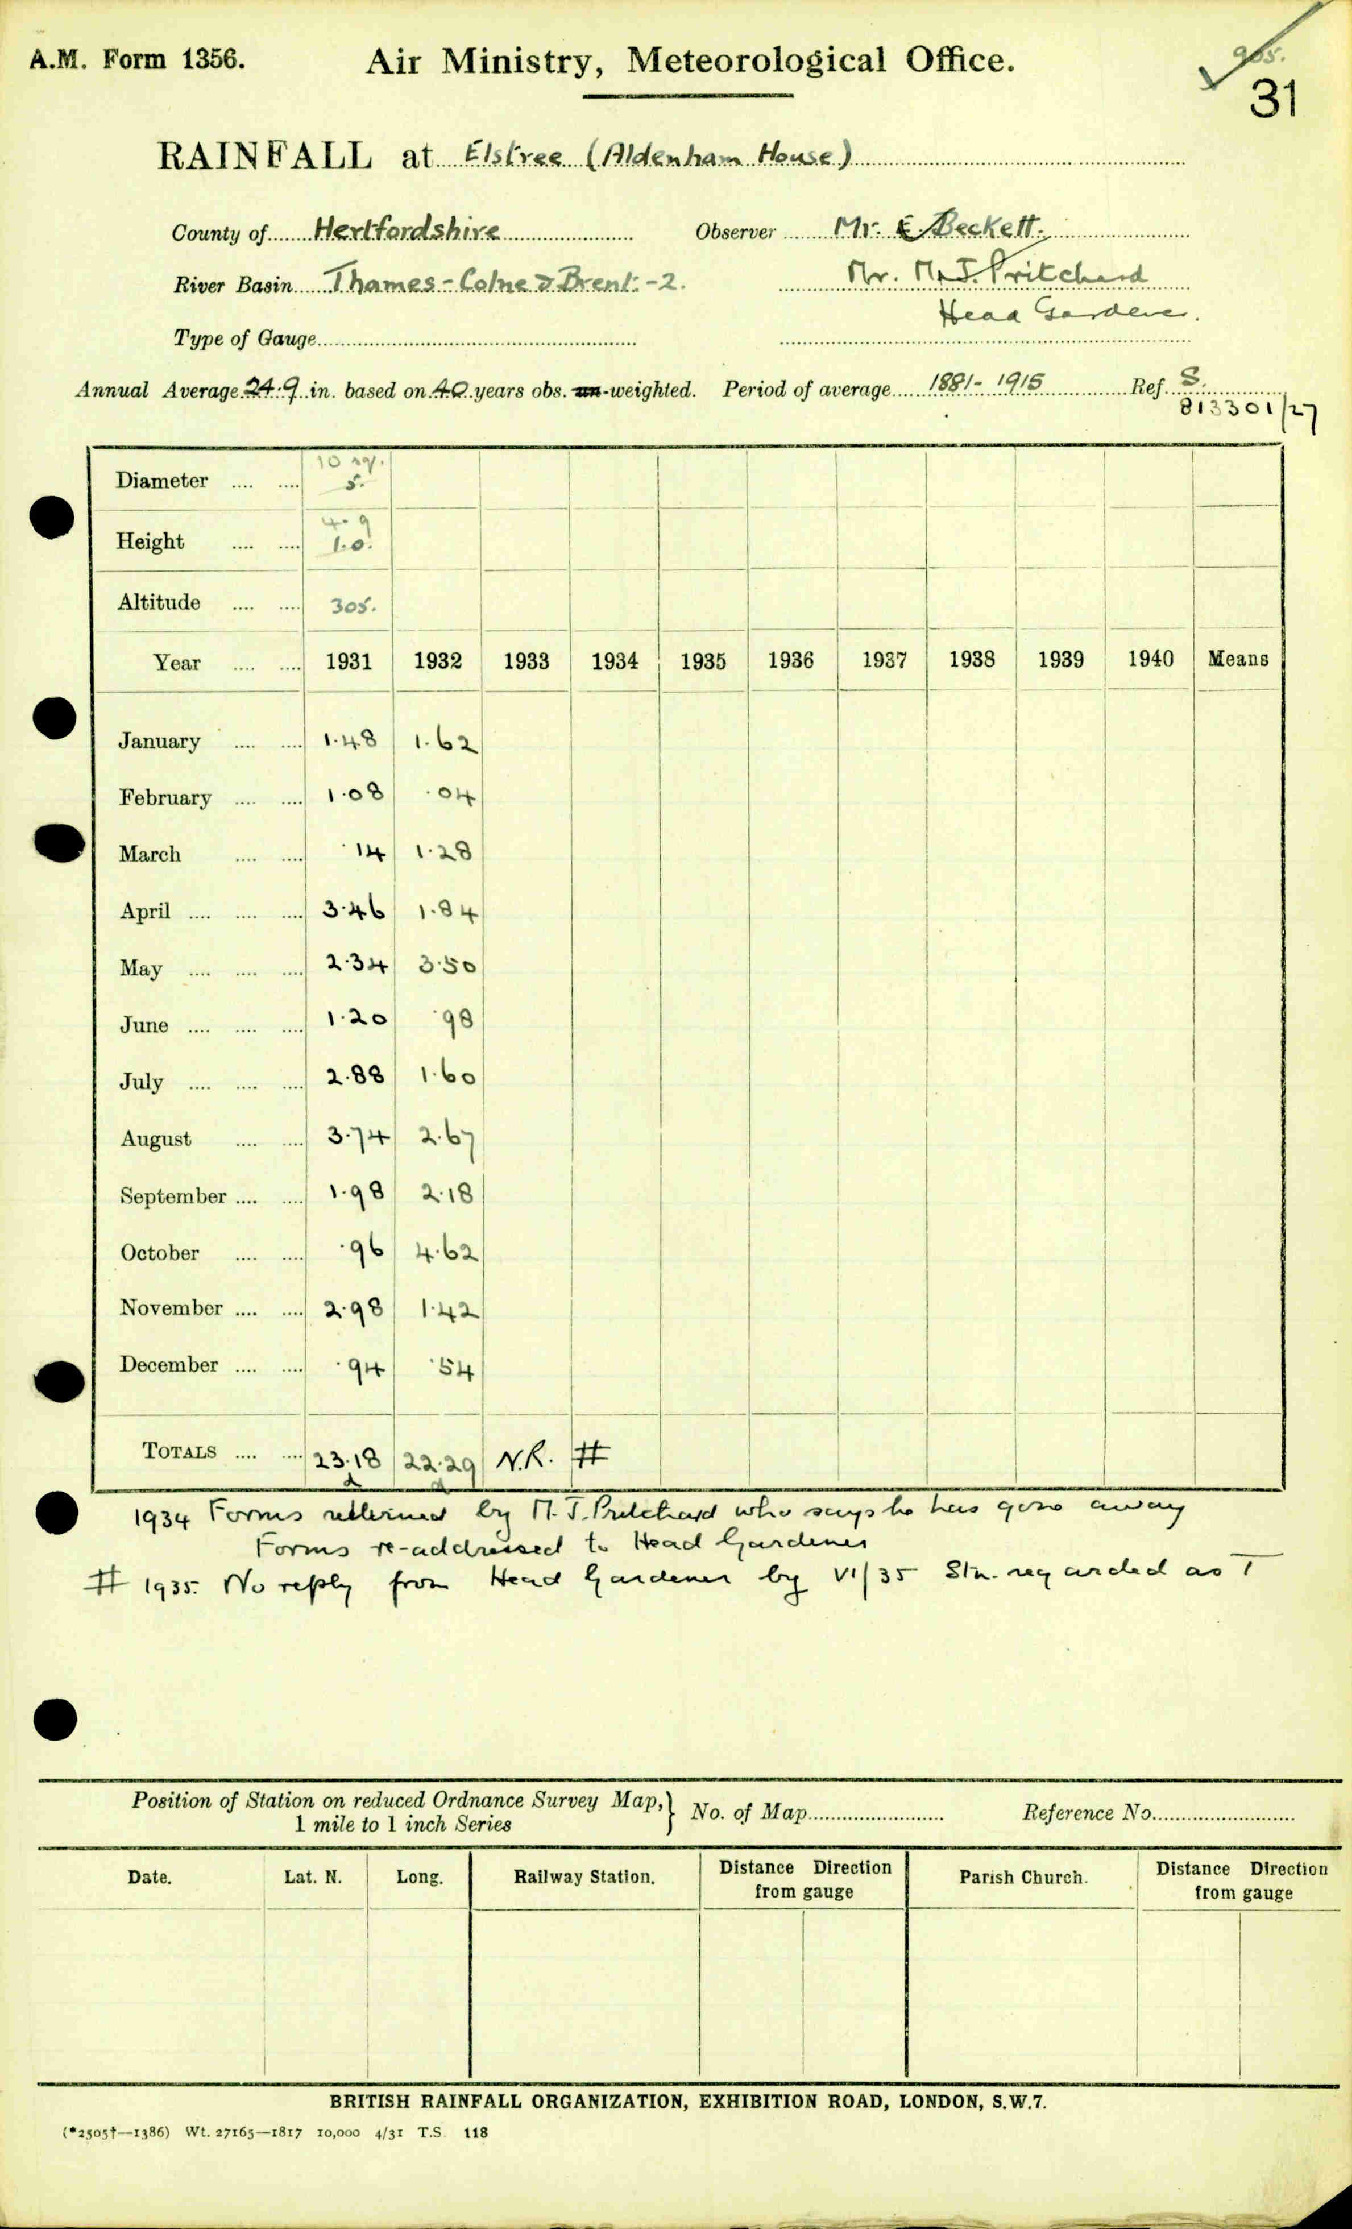 A.M. Form 1356.
Air Ministry, Meteorological Office.
905.
31
RAINFALL at Elstree (Aldenham House)
County of Hertfordshire Observer Mr. E. Beckett.
River Basin Thames - Colne & Brent - 2. Mr. M. J. Pritchard
Head Gardener.
Type of Gauge
Annual Average 24.9 in. based on 40 years obs. un-weighted. Period of average 1881-1915 Ref. S.
813301/27
Diameter 10 sq. 5.
Height 4.9 1.0.
Altitude 305.
Year 1931 1932 1933 1934 1935 1936 1937 1938 1939 1940 Means
January 1.48 1.62
February 1.08 .04
March .14 1.28
April 3.46 1.84
May 2.34 3.50
June 1.20 .98
July 2.88 1.60
August 3.74 2.67
September 1.98 2.18
October .96 4.62
November 2.98 1.42
December .94 .54
TOTALS 23.18 22.29 N.R. #
1934 Forms returned by M. J. Pritchard who says he has gone away
Forms re-addressed to Head Gardener
# 1935. No reply from Head Gardener by VI/35 Stn. regarded as T
Position of Station on reduced Ordnance Survey Map, } No. of Map Reference No.
1 mile to 1 inch Series
Date. Lat. N. Long. Railway Station. Distance Direction from gauge Parish Church. Distance Direction from gauge
BRITISH RAINFALL ORGANIZATION, EXHIBITION ROAD, LONDON, S.W.7.
(*2505†—1386) Wt. 27165—1817 10,000 4/31 T.S. 118